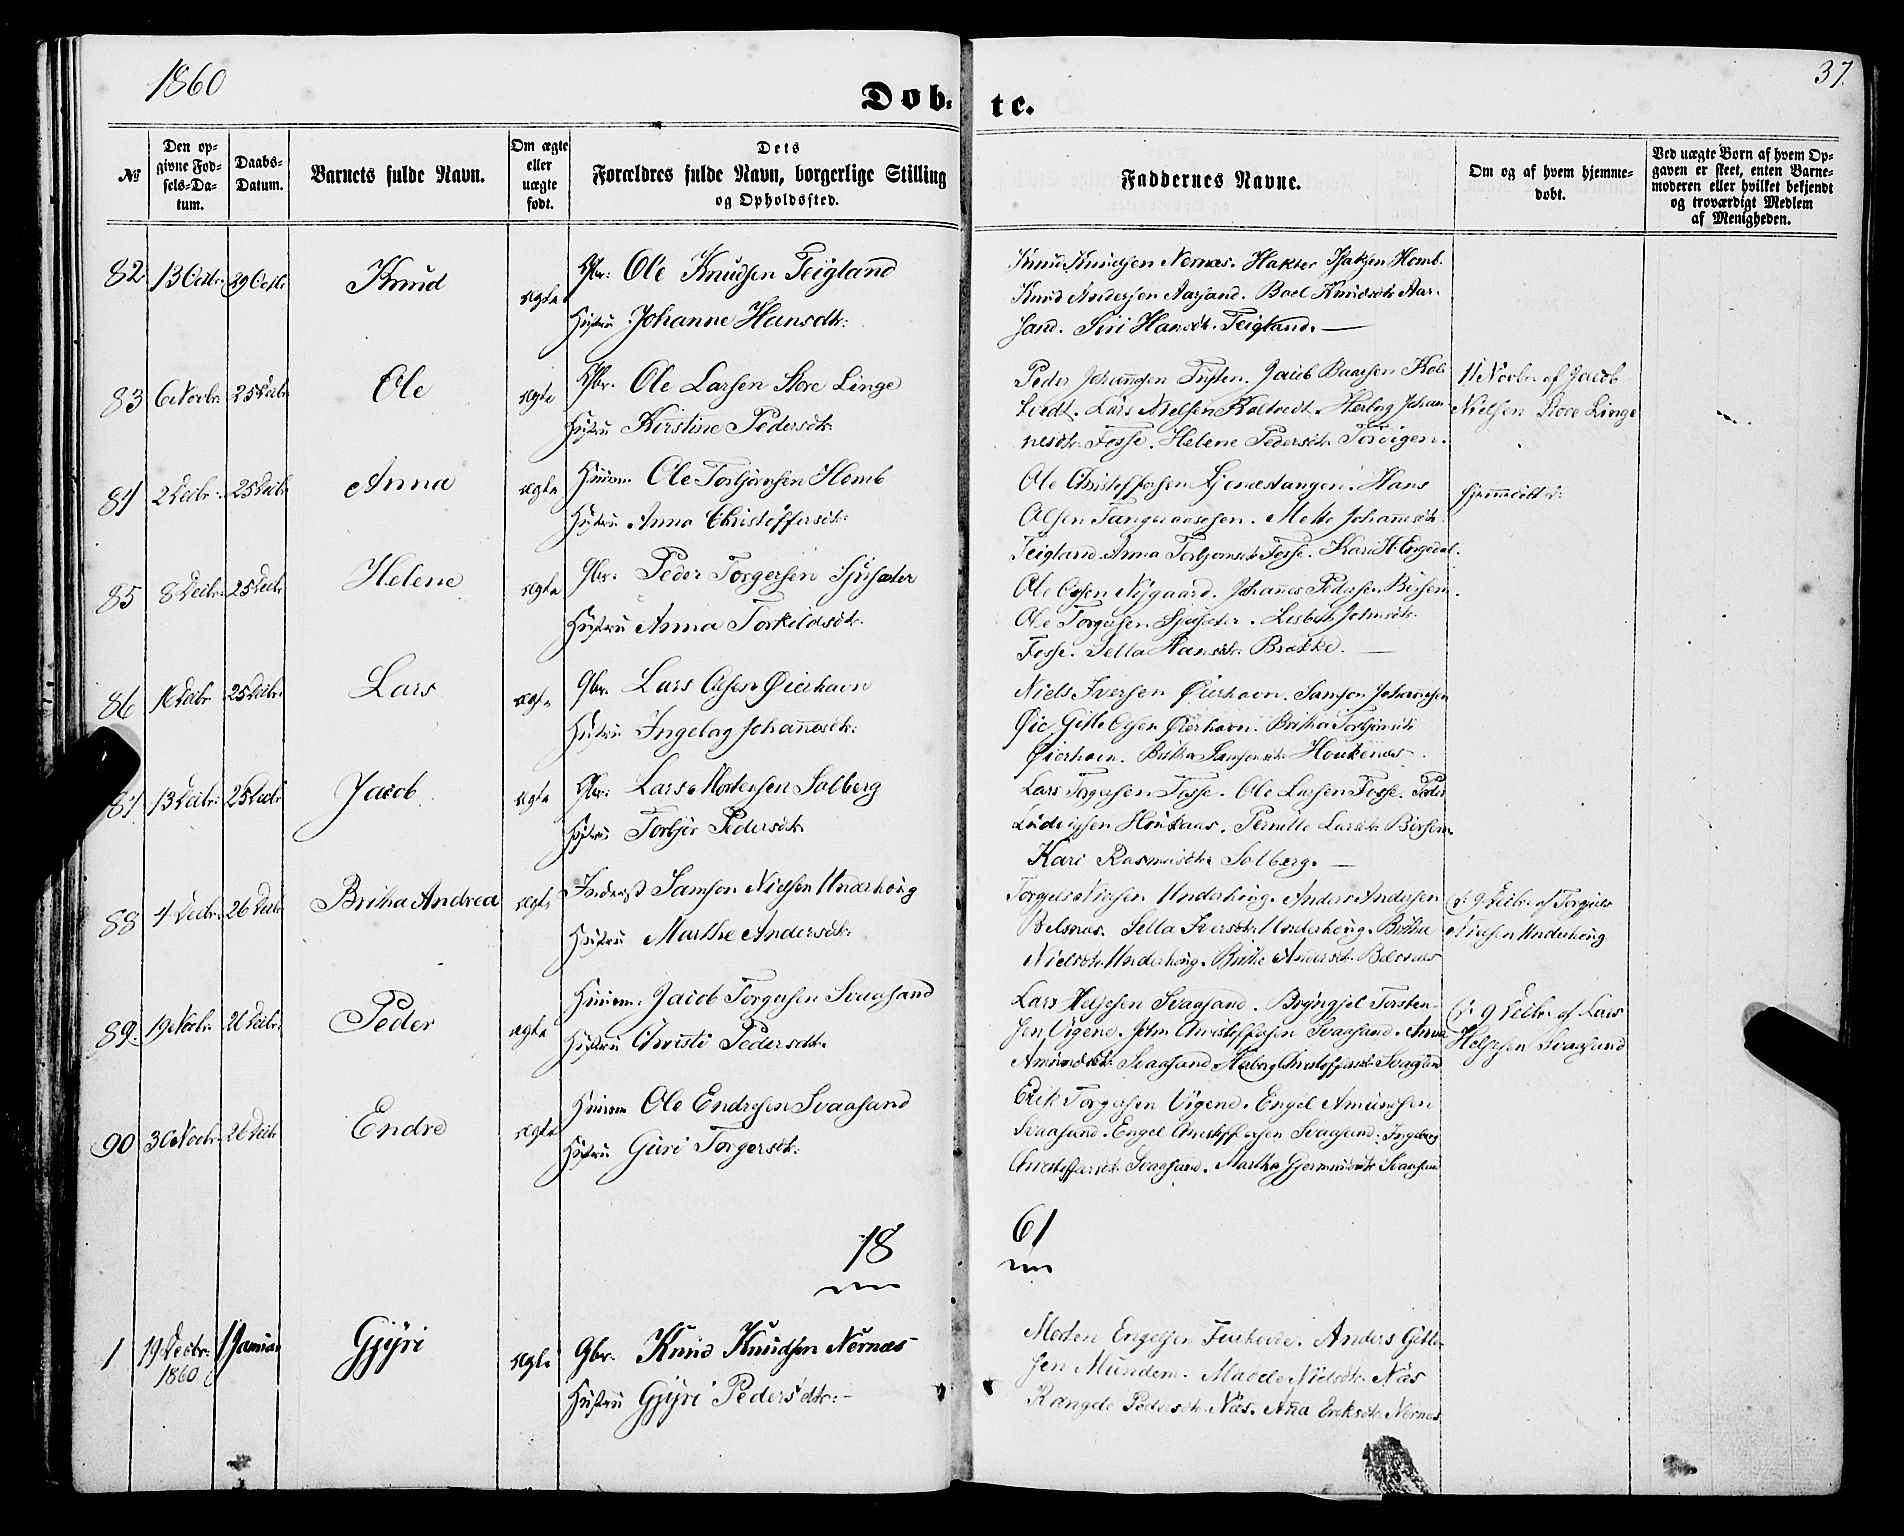 1860
37.
Døb- te.
No
Den op-
givne Fød-
sels-Da-
tum.
Daabs-
Datum.
Barnets fulde Navn.
Om ægte
eller
uægte
født.
Dets
Forældres fulde Navn, borgerlige Stilling
og Opholdssted.
Faddernes Navne.
Om og af hvem hjemme-
døbt.
Ved uægte Børn af hvem Op-
gaven er skeet, enten Barne-
moderen eller hvilket bekjendt
og troværdigt Medlem
af Menigheden.
82 13 Octbr. 29 Octbr Knud ægte Gbr: Ole Knudsen Teigland
Hustru Johanne Hansdtr:
Knud Knudsen Nernæs. Isaksen Homb.
Knud Andersen Aarsand. Boel Knudsdtr Aar-
sand. Siri Hansdtr. Teigland.
83 6 Novbr. 25 Decbr. Ole ægte Gbr. Ole Larsen Store Linge
Hustru Kirstine Pedersdtr.
Peder Johannesen Jacob Baarsen Kol-
tvedt. Lars Nielsen Koltvedt. Herborg Johan-
nesdtr. Fosse. Helene Pedersdtr.
11 Novbr. af Jacob
Nielsen Store Linge
84 2 Decbr. 25 Decbr Anna ægte Huusm. Ole Torbjørnsen Homb
Hustru Anna Christoffersdtr.
Ole Christoffersen Hans
Olsen Mette Johannesdtr.
Teigland. Anna Torbjørnsdtr Fosse. Kari H. Engedal.
hjemmedøbt
85 8 Decbr. 25 Decbr Helene ægte Gbr: Peder Torgersen Sjusæter
Hustru Anna Torkildsdtr.
Ole Olsen Nygaard. Johannes Pedersen
Ole Torgersen Sjusæter. Lisbeth Johnsdtr.
Fosse. Hansdtr. Brekke.
86 16 Decbr 25 Decbr. Lars ægte Gbr. Lars Olsen Øierhavn
Hustru Ingeborg Johannesdtr:
Niels Iversen Øierhavn. Samson Johannesen
Øie. Gitle Olsen Øierhavn. Britha Torbjørnsdtr
Øierhavn. Britha Samsonsdtr
87 13 Decbr: 25 Decbr Jacob ægte Gbr: Lars Mortensen Solberg
Hustru Torbjør Pedersdtr.
Lars Torgersen Fosse. Ole Larsen Fosse. Peder
Ludvigsen Pernille Larsdtr.
Kari Rasmusdtr Solberg.
88 4 Decbr. 26 Decbr Britha Andrea ægte Samson Nielsen Underhoug
Hustru Marthe Andersdtr.
Torgils Nielsen Underhoug. Anders Andersen
Belsnæs. Sella Iversdtr Underhoug. Britha
Nielsdtr. Underhoug. Brithe Andersdtr. Belsnæs
d. 9 Decbr. af Torgils
Nielsen Underhoug
89. 19 Novbr. 26 Decbr. Peder ægte Huusm. Jacob Torgersen Svaasand
Hustru Christi Pedersdtr.
Lars Helgesen Svaasand. Bryngjel Torsten-
sen Vigene. John Christoffersen Svaasand. Anna
Amundsdtr. Svaasand. Herborg Christoffersdtr Svaasand
d. 9 Decbr. af Lars
Helgesen Svaasand
90 30 Novbr. 26 Decbr Endre ægte Huusm Ole Endresen Svaasand
Hustru Guri Torgersdtr.
Erik Torgersen Vigene. Engel Amundsen
Svaasand. Engel Christoffersen Svaasand. Ingeborg
Christoffersdtr. Svaasand. Martha Gjermundsdtr Svaasand
18 61
1 19 Decbr. 1860 1 Januar Gjyri ægte Gbr. Knud Knudsen Nernæs
Hustru Gjyri Pedersdtr.
Morten Engelsen Anders Gitle-
sen Mundem. Nielsdtr. Næs
Pedersdtr. Næs. Anna Eriksdtr. Nernæs